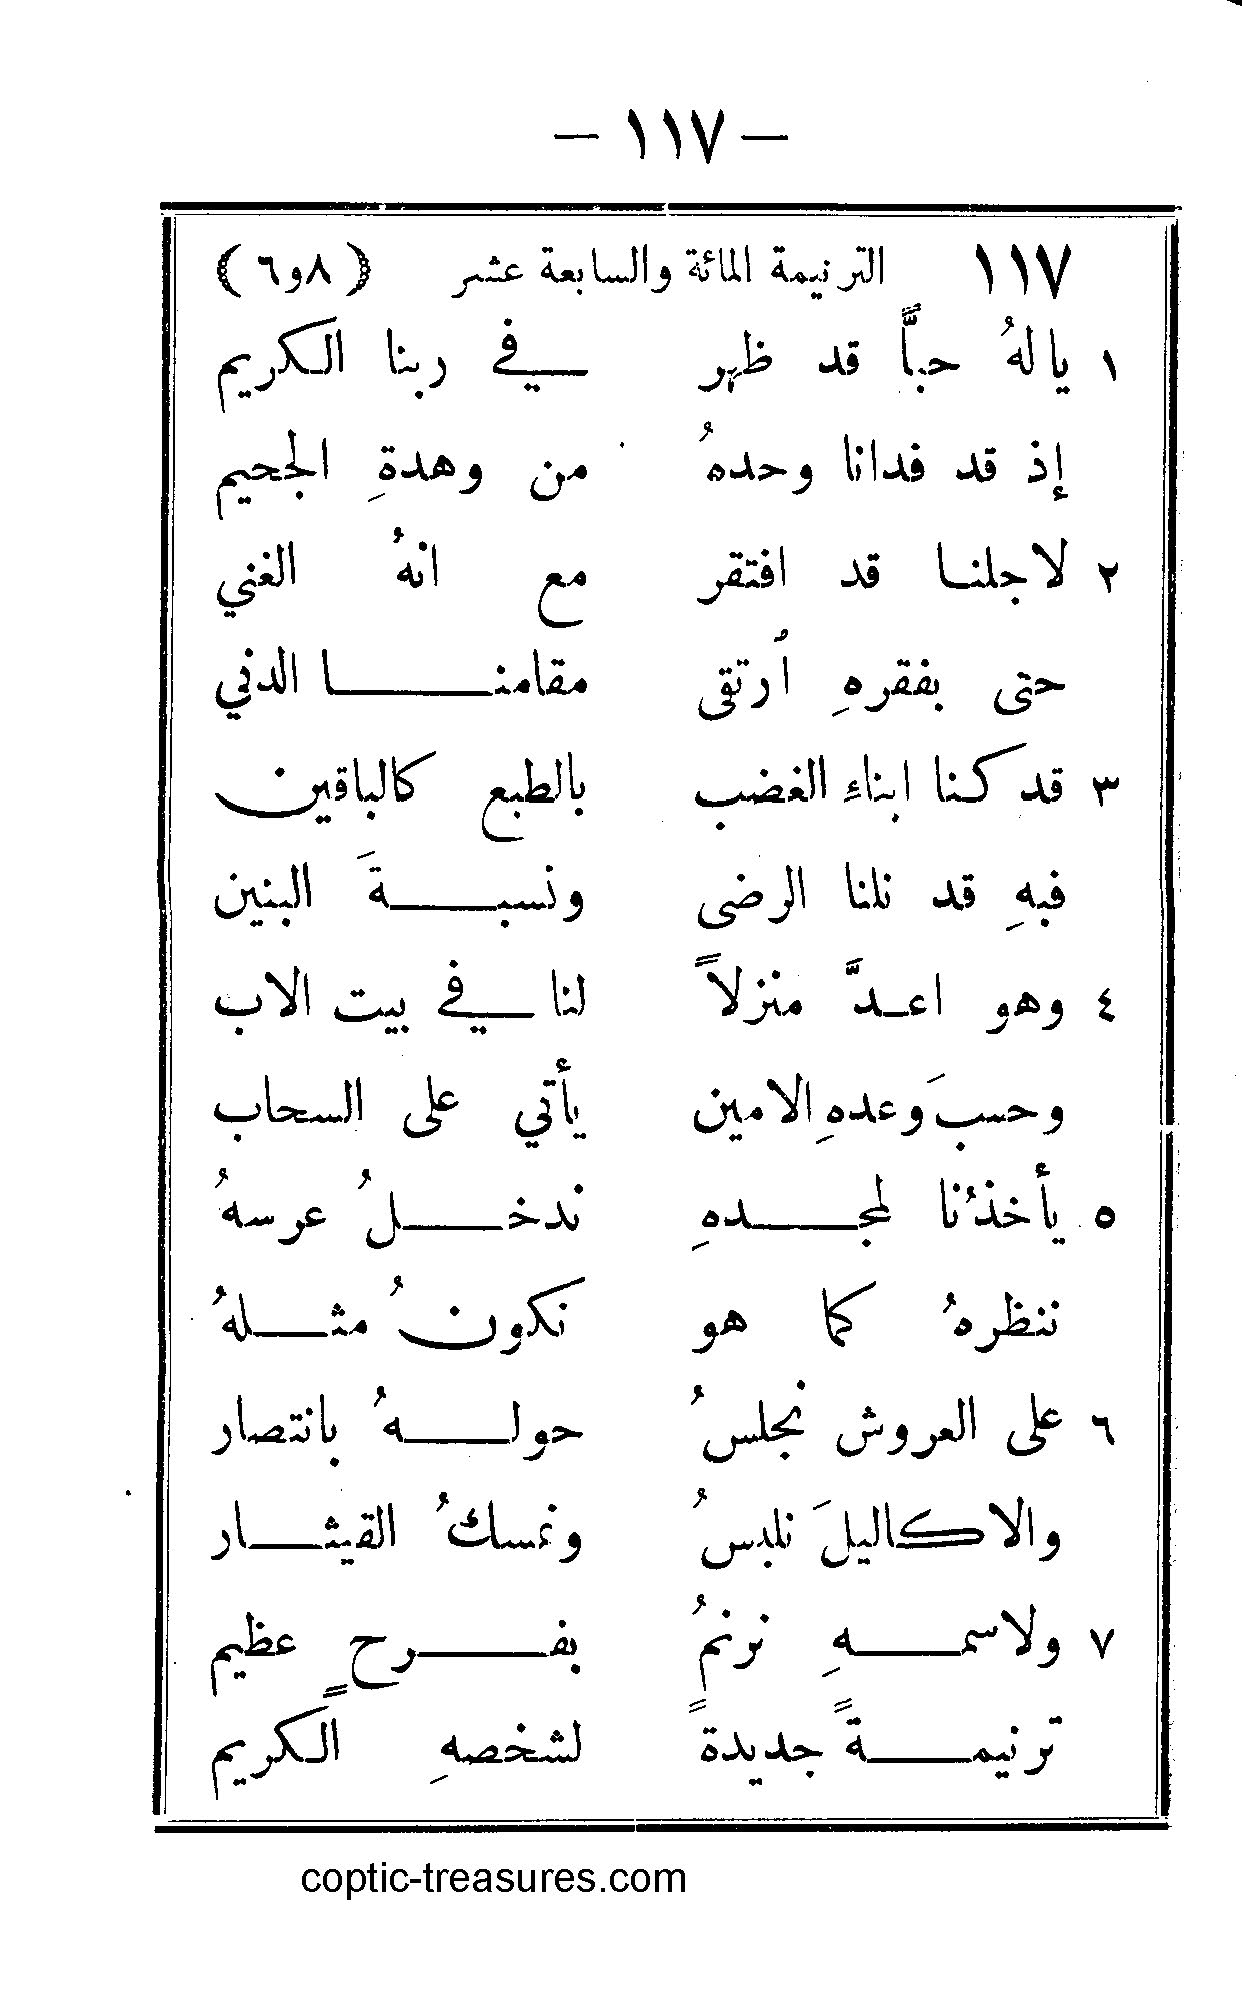 — ١١٧ —
١١٧ الترنيمة المائة والسابعة عشر (٨و٦)
١ يالهُ حبًّا قد ظهر في ربنا الكريم
إذ قد فدانا وحدهُ من وهدةِ الجحيم
٢ لاجلنا قد افتقر مع انهُ الغني
حتى بفقرهِ ٱرتقى مقامنا الدني
٣ قد كنا ابناءِ الغضب بالطبع كالباقين
فبهِ قد نلنا الرضى ونسبةَ البنين
٤ وهو اعدَّ منزلاً لنا في بيت الاب
وحسبَ وعدهِ الامين يأتي على السحاب
٥ يأخذُنا لمجدهِ ندخلُ عرسهُ
ننظرهُ كما هو نكونُ مثلهُ
٦ على العروش نجلسُ حولهُ بانتصار
والاكاليلَ نلبسُ ونمسكُ القيثار
٧ ولاسمهِ نرنمُ بفرحٍ عظيم
ترنيمةً جديدةً لشخصهِ الكريم
coptic-treasures.com